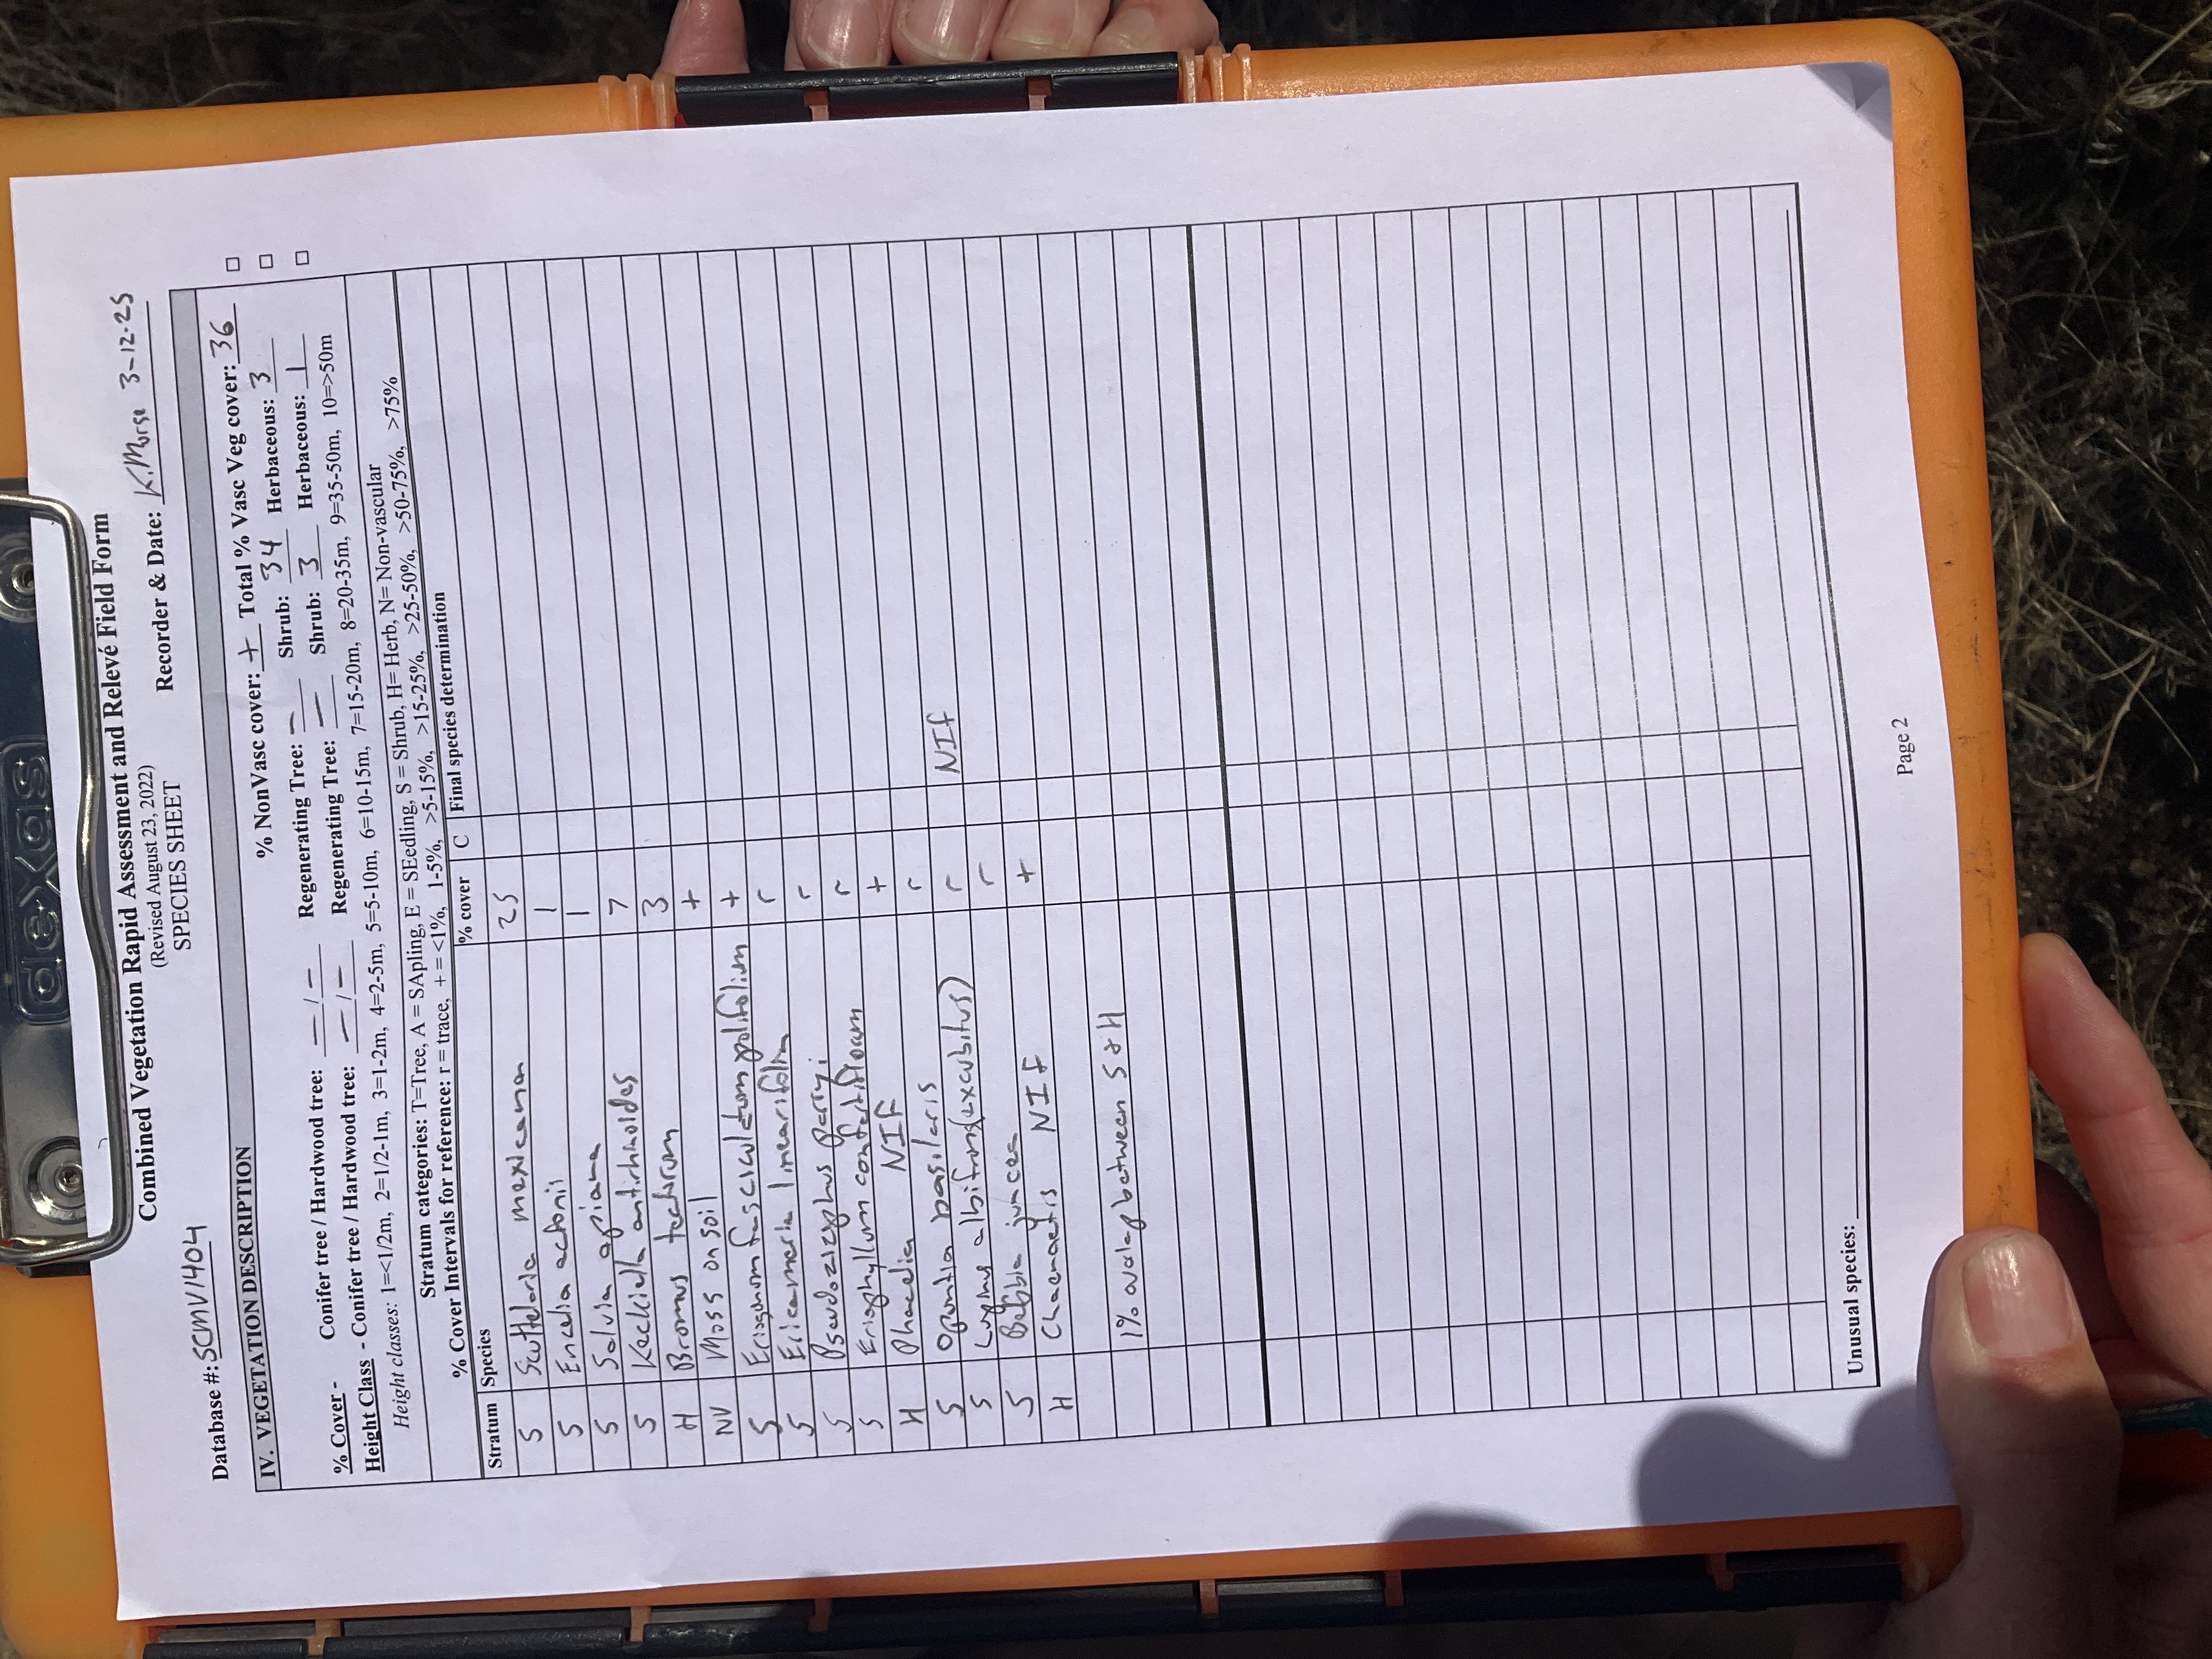 dexas
Combined Vegetation Rapid Assessment and Relevé Field Form
(Revised August 23, 2022)
SPECIES SHEET
Database #: SCMV1404 Recorder & Date: K.Morse 3-12-25
IV. VEGETATION DESCRIPTION
% NonVasc cover: + Total % Vasc Veg cover: 36 □
% Cover - Conifer tree / Hardwood tree: — / — Regenerating Tree: — Shrub: 34 Herbaceous: 3 □
Height Class - Conifer tree / Hardwood tree: — / — Regenerating Tree: — Shrub: 3 Herbaceous: 1 □
Height classes: 1=<1/2m, 2=1/2-1m, 3=1-2m, 4=2-5m, 5=5-10m, 6=10-15m, 7=15-20m, 8=20-35m, 9=35-50m, 10=>50m
Stratum categories: T=Tree, A = SApling, E = SEedling, S = Shrub, H= Herb, N= Non-vascular
% Cover Intervals for reference: r = trace, + = <1%, 1-5%, >5-15%, >15-25%, >25-50%, >50-75%, >75%
Stratum Species % cover C Final species determination
S Scutelaria mexicana 25
S Encelia actonii 1
S Salvia apiana 1
S Keckiella antirhinoides 7
H Bromus tectorum 3
NV Moss on soil +
S Eriogonum fasciculatum polifolium +
S Ericameria linearifolia r
S Pseudoziziphus parryi r
S Eriophyllum confertiflorum r
H Phacelia NIF +
S Opuntia basilaris r
S Lupinus albifrons (excubitus) r NIF
S Bebbia juncea r
H Chaenactis NIF +
1% overlap between S & H
Unusual species:
Page 2